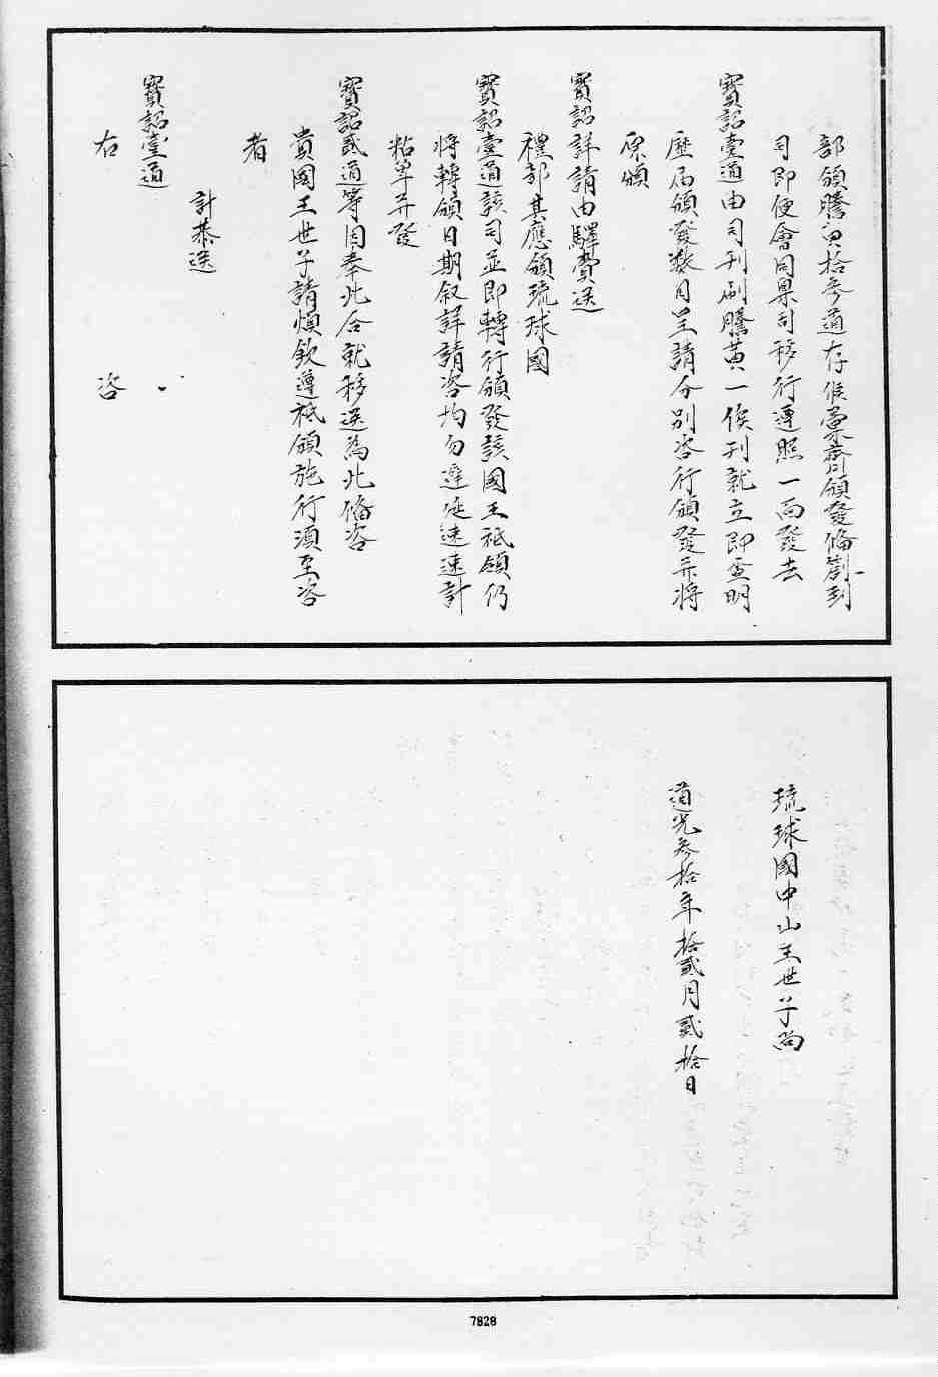 部頒謄黃拾參道存候彙齊頒發備劄到
司即便會同臬司移行遵照一面發去
寶詔壹道由司刊刷謄黃一俟刊就立即查明
歷屆頒發数目呈請分別咨行頒發并將
原頒
寶詔詳請由驛賫送
禮部其應領琉球國
寶詔壹道該司並即轉行頒發該國王祗領仍
將轉頒日期叙詳請咨均勿遲延速速計
粘單并發
寶詔貳道等因奉此合就移送為此備咨
貴國王世子請煩欽遵祗領施行湏至咨
者
計恭送
寶詔壹道
右 咨
琉球國中山王世子尚
道光參拾年拾貳月貳拾日
7828